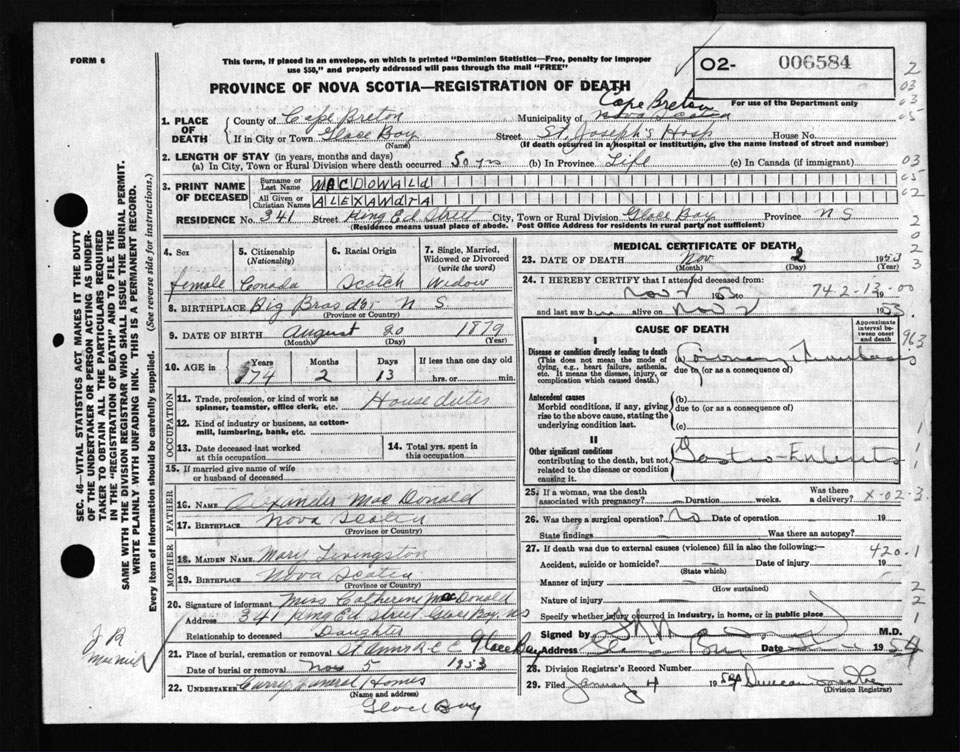 FORM 6
This form, if placed in an envelope, on which is printed "Dominion Statistics—Free, penalty for improper
use $50," and properly addressed will pass through the mail "FREE"
O2- 006584
For use of the Department only
PROVINCE OF NOVA SCOTIA—REGISTRATION OF DEATH
1. PLACE OF DEATH
County of Cape Breton
Municipality of Cape Breton Nova Scotia
If in City or Town Glace Bay Street St. Joseph's Hosp House No.
(Name) (If death occurred in a hospital or institution, give the name instead of street and number)
2. LENGTH OF STAY (in years, months and days)
(a) In City, Town or Rural Division where death occurred 50 yrs (b) In Province Life (c) In Canada (if immigrant)
3. PRINT NAME OF DECEASED
Surname or Last Name MACDONALD
All Given or Christian Names ALEXANDRA
RESIDENCE No. 341 Street King Ed Street City, Town or Rural Division Glace Bay Province N S
(Residence means usual place of abode. Post Office Address for residents in rural parts not sufficient)
4. Sex 5. Citizenship (Nationality) 6. Racial Origin 7. Single, Married, Widowed or Divorced (write the word)
female Canada Scotch Widow
8. BIRTHPLACE Big Bras d'or N S.
(Province or Country)
9. DATE OF BIRTH August 20 1879
(Month) (Day) (Year)
10. AGE in Years Months Days If less than one day old
74 2 13 hrs. or min.
OCCUPATION
11. Trade, profession, or kind of work as spinner, teamster, office clerk, etc. House duties
12. Kind of industry or business, as cotton-mill, lumbering, bank, etc.
13. Date deceased last worked at this occupation
14. Total yrs. spent in this occupation
15. If married give name of wife or husband of deceased
FATHER
16. NAME Alexander MacDonald
17. BIRTHPLACE Nova Scotia
(Province or Country)
MOTHER
18. MAIDEN NAME Mary Livingston
19. BIRTHPLACE Nova Scotia
(Province or Country)
20. Signature of informant Miss Catherine MacDonald
Address 341 King Ed Street Glace Bay, NS
Relationship to deceased Daughter
21. Place of burial, cremation or removal St Anns R.C.C Glace Bay
Date of burial or removal Nov 5 1953
22. UNDERTAKER Curry Funeral Homes
(Name and address)
Glace Bay
MEDICAL CERTIFICATE OF DEATH
23. DATE OF DEATH Nov 2 1953
(Month) (Day) (Year)
24. I HEREBY CERTIFY that I attended deceased from:
Nov 2 53 to 19
74 2-13-00
and last saw h alive on Nov 2 1953.
CAUSE OF DEATH
Approximate interval between onset and death
I
Disease or condition directly leading to death
(This does not mean the mode of dying, e.g., heart failure, asthenia, etc. It means the disease, injury, or complication which caused death.)
(a) Coronary Thrombosis
due to (or as a consequence of)
Antecedent causes
Morbid conditions, if any, giving rise to the above cause, stating the underlying condition last.
(b)
due to (or as a consequence of)
(c)
II
Other significant conditions
contributing to the death, but not related to the disease or condition causing it.
Gastro-Enteritis
25. If a woman, was the death associated with pregnancy? Duration weeks. Was there a delivery?
X-02-3
26. Was there a surgical operation? no Date of operation 19
State findings Was there an autopsy?
27. If death was due to external causes (violence) fill in also the following:—
420.1
Accident, suicide or homicide? Date of injury 19
(State which)
Manner of injury
(How sustained)
Nature of injury
Specify whether injury occurred in industry, in home, or in public place
Signed by M.D.
Address Glace Bay Date 1954
28. Division Registrar's Record Number
29. Filed January 4 1954 Duncan
(Division Registrar)
SEC. 46—VITAL STATISTICS ACT MAKES IT THE DUTY
OF THE UNDERTAKER OR PERSON ACTING AS UNDER-
TAKER TO OBTAIN ALL THE PARTICULARS REQUIRED
IN THE "REGISTRATION OF DEATH" AND TO FILE THE
SAME WITH THE DIVISION REGISTRAR WHO SHALL ISSUE THE BURIAL PERMIT.
WRITE PLAINLY WITH UNFADING INK. THIS IS A PERMANENT RECORD.
Every item of information should be carefully supplied. (See reverse side for instructions.)